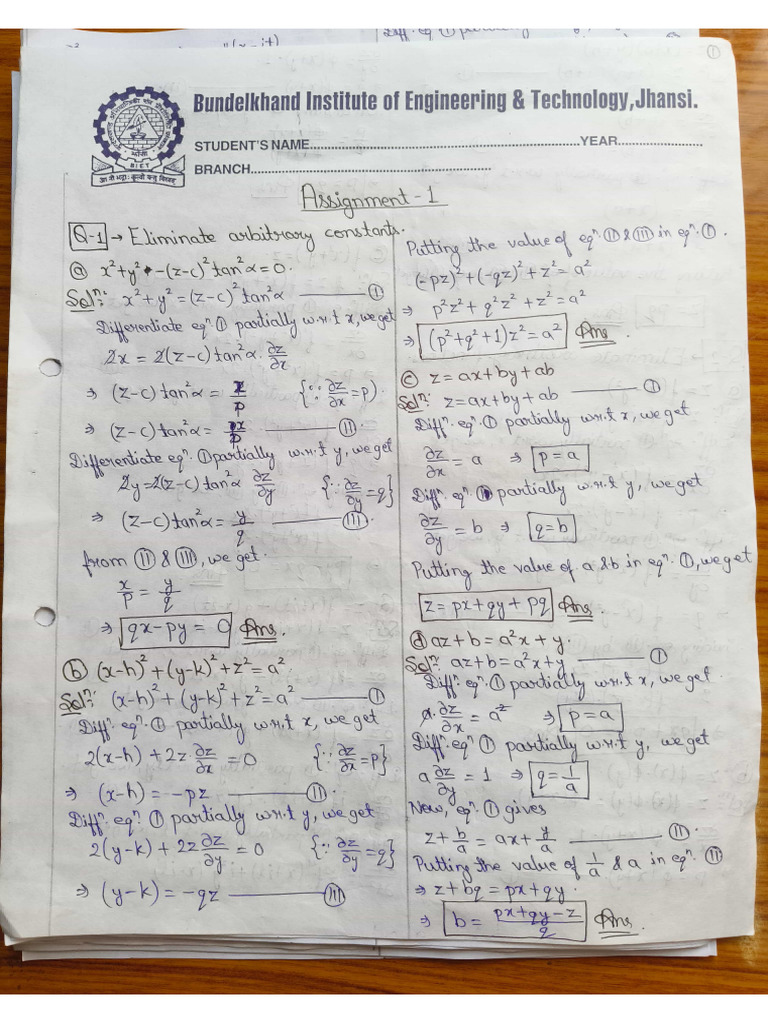 ①
Bundelkhand Institute of Engineering & Technology, Jhansi.
STUDENT'S NAME.................................................................YEAR.....................
BRANCH.......................................................
B I E T
Assignment - 1
Q-1 → Eliminate arbitrary constants.
ⓐ x²+y² -(z-c)²tan²α=0.
Solⁿ: x²+y² = (z-c)²tan²α ——— Ⓘ
Differentiate eqⁿ. Ⓘ partially w.r.t x, we get
2x = 2(z-c)tan²α. ∂z/∂x
⇒ (z-c)tan²α = x/p {∵ ∂z/∂x = p}
⇒ (z-c)tan²α = x/p ——— Ⓘ Ⓘ
Differentiate eqⁿ. Ⓘ partially w.r.t y, we get
2y = 2(z-c)tan²α ∂z/∂y {∵ ∂z/∂y = q}
⇒ (z-c)tan²α = y/q ——— (III)
from (II) & (III), we get.
x/p = y/q
⇒ qx-py = 0 Ans.
ⓑ (x-h)²+(y-k)²+z² = a².
Solⁿ: (x-h)²+(y-k)²+z² = a² ——— Ⓘ
Diffⁿ. eqⁿ. Ⓘ partially w.r.t x, we get
2(x-h)+2z. ∂z/∂x = 0 {∵ ∂z/∂x = p}
⇒ (x-h) = -pz ——— (II)
Diffⁿ. eqⁿ. Ⓘ partially w.r.t y, we get
2(y-k)+2z ∂z/∂y = 0 {∵ ∂z/∂y = q}
⇒ (y-k) = -qz ——— (III)
Putting the value of eqⁿ. (II) & (III) in eqⁿ. Ⓘ.
(-pz)²+(-qz)²+z² = a²
⇒ p²z²+q²z²+z² = a²
⇒ (p²+q²+1)z² = a² Ans
ⓒ z = ax+by+ab
Solⁿ: z = ax+by+ab ——— Ⓘ
Diffⁿ. eqⁿ. Ⓘ partially w.r.t x, we get
∂z/∂x = a ⇒ p = a
Diffⁿ. eqⁿ. Ⓘ partially w.r.t y, we get
∂z/∂y = b ⇒ q = b
Putting the value of a & b in eqⁿ. Ⓘ, we get
z = px+qy+pq Ans.
ⓓ az+b = a²x+y.
Solⁿ: az+b = a²x+y ——— Ⓘ
Diffⁿ. eqⁿ. Ⓘ partially w.r.t x, we get
a. ∂z/∂x = a² ⇒ p = a
Diffⁿ. eqⁿ. Ⓘ partially w.r.t y, we get
a ∂z/∂y = 1 ⇒ q = 1/a
Now, eqⁿ. Ⓘ gives
z + b/a = ax + y/a ——— (II)
Putting the value of 1/a & a in eqⁿ. (II)
⇒ z+bq = px+qy.
⇒ b = (px+qy-z)/q Ans.